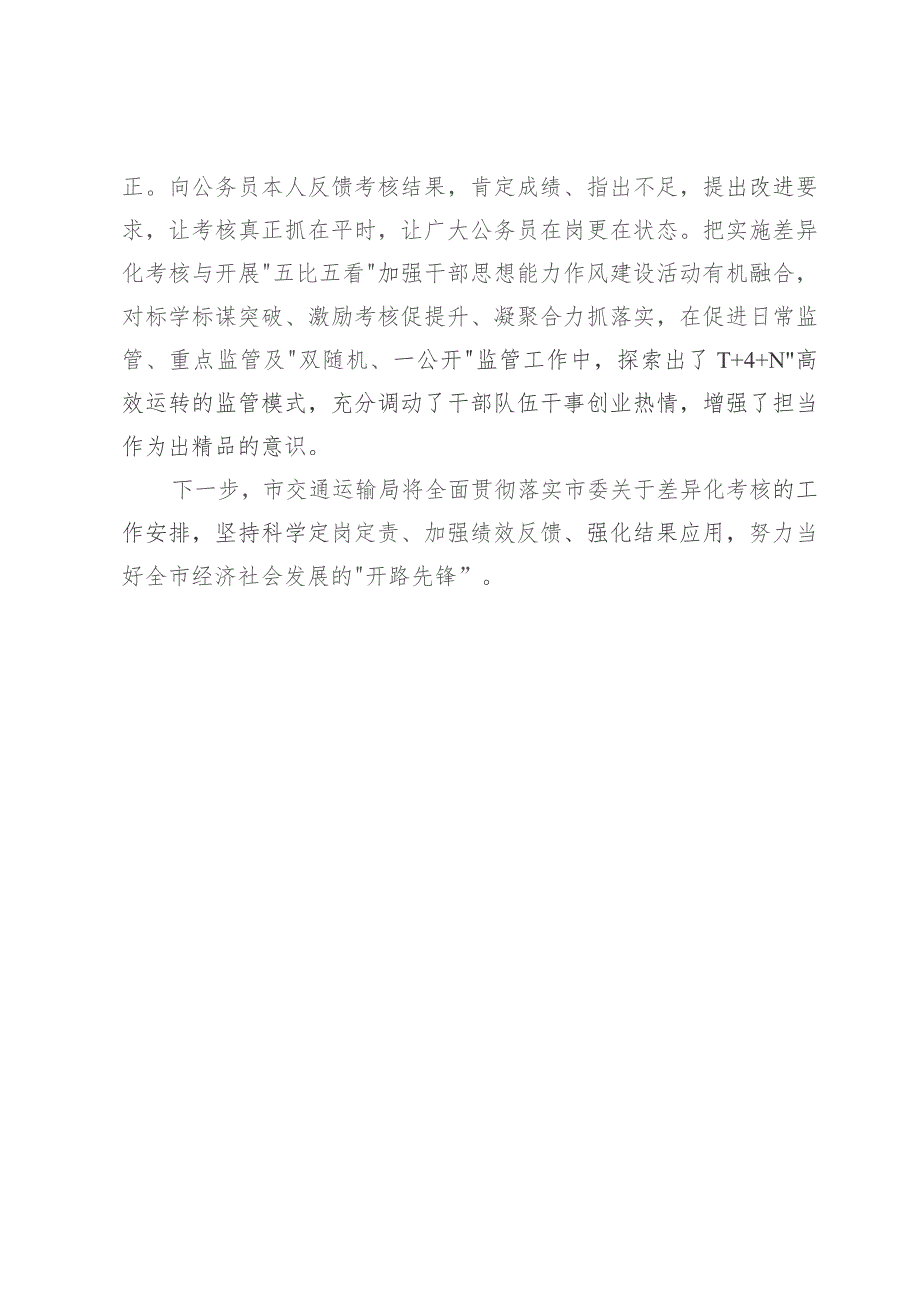 正。向公务员本人反馈考核结果，肯定成绩、指出不足，提出改进要
求，让考核真正抓在平时，让广大公务员在岗更在状态。把实施差异
化考核与开展"五比五看"加强干部思想能力作风建设活动有机融合，
对标学标谋突破、激励考核促提升、凝聚合力抓落实，在促进日常监
管、重点监管及"双随机、一公开"监管工作中，探索出了 T+4+N"高
效运转的监管模式，充分调动了干部队伍干事创业热情，增强了担当
作为出精品的意识。
下一步，市交通运输局将全面贯彻落实市委关于差异化考核的工
作安排，坚持科学定岗定责、加强绩效反馈、强化结果应用，努力当
好全市经济社会发展的"开路先锋”。